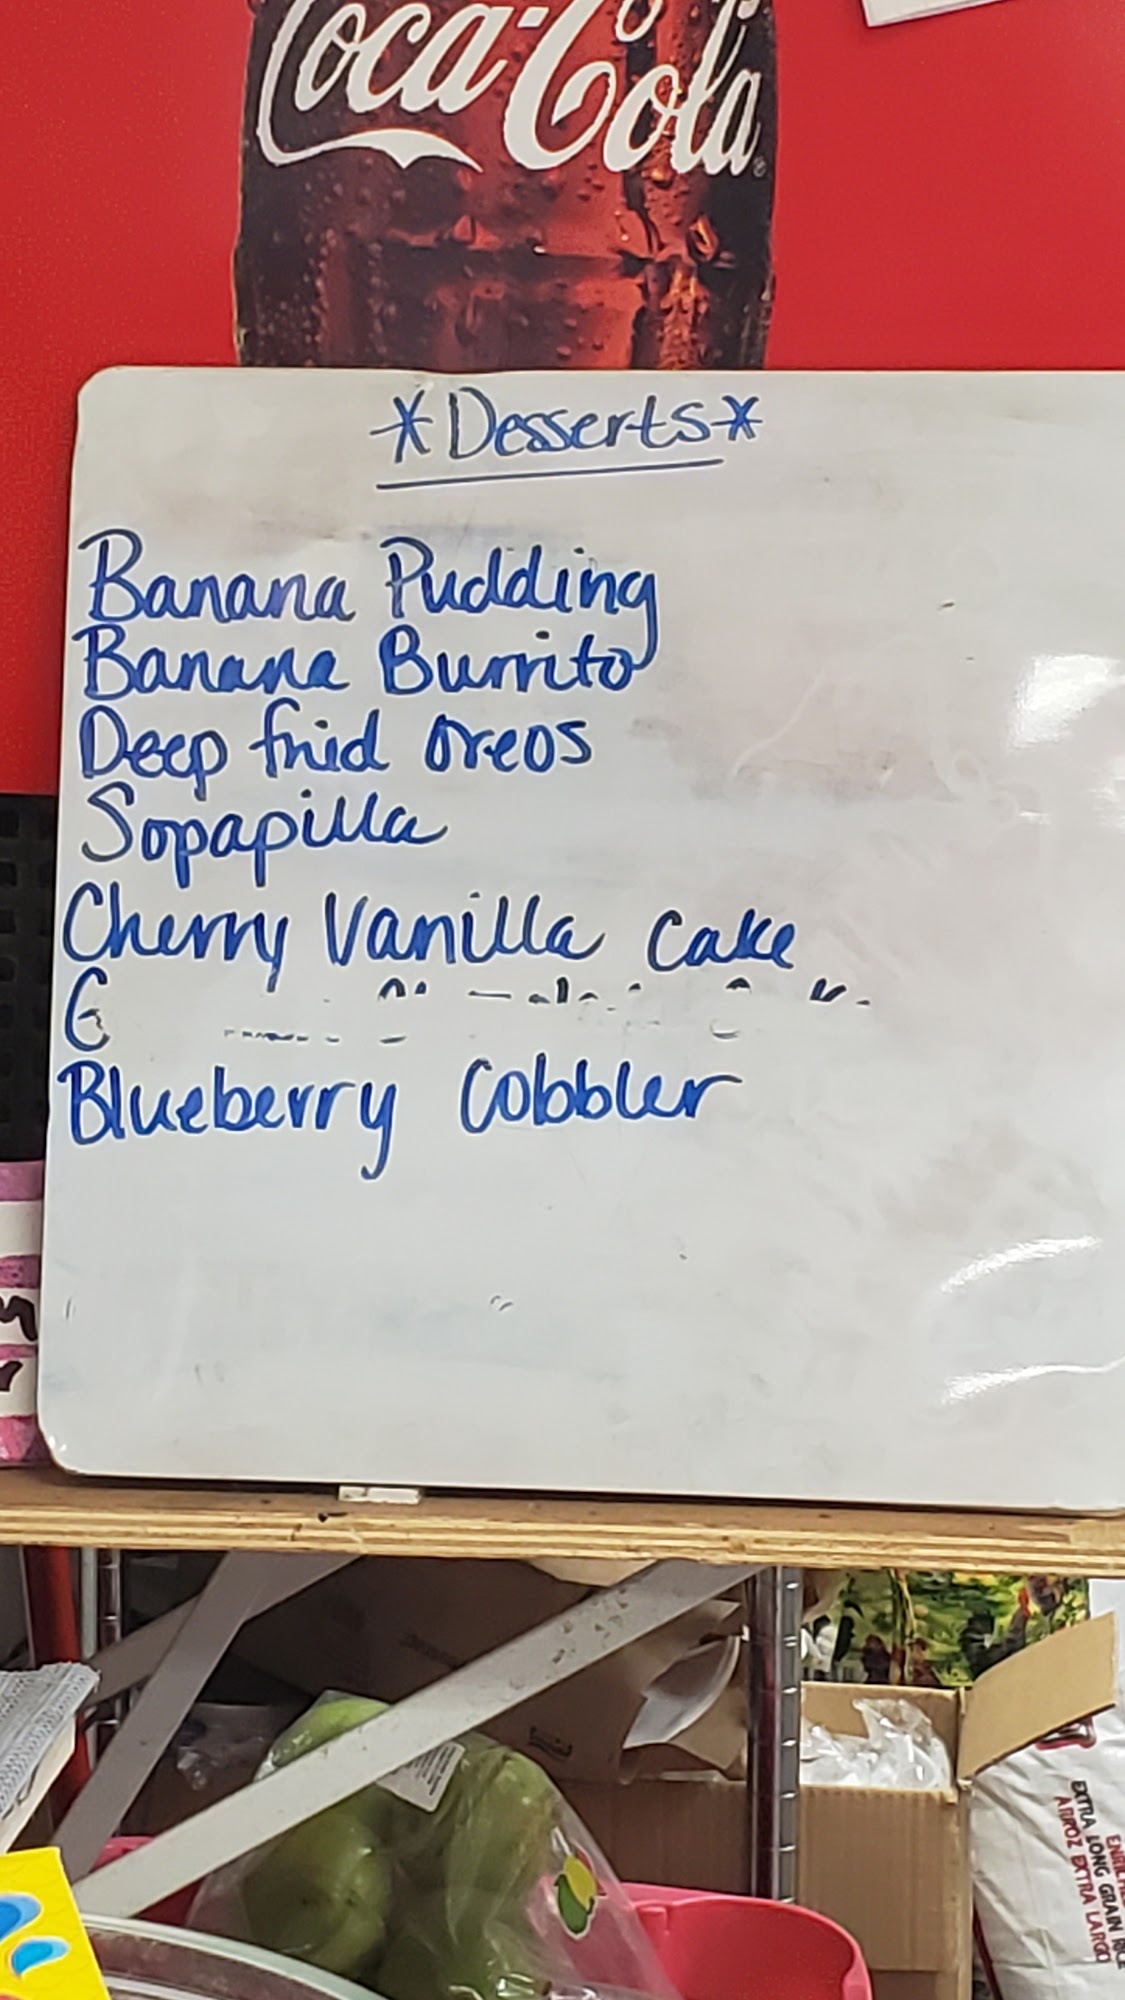 Coca-Cola
*Desserts*
Banana Pudding
Banana Burrito
Deep frid oreos
Sopapilla
Cherry Vanilla Cake
G
Blueberry Cobbler
ENRICHED
EXTRA LONG GRAIN RICE
ARROZ EXTRA LARGO